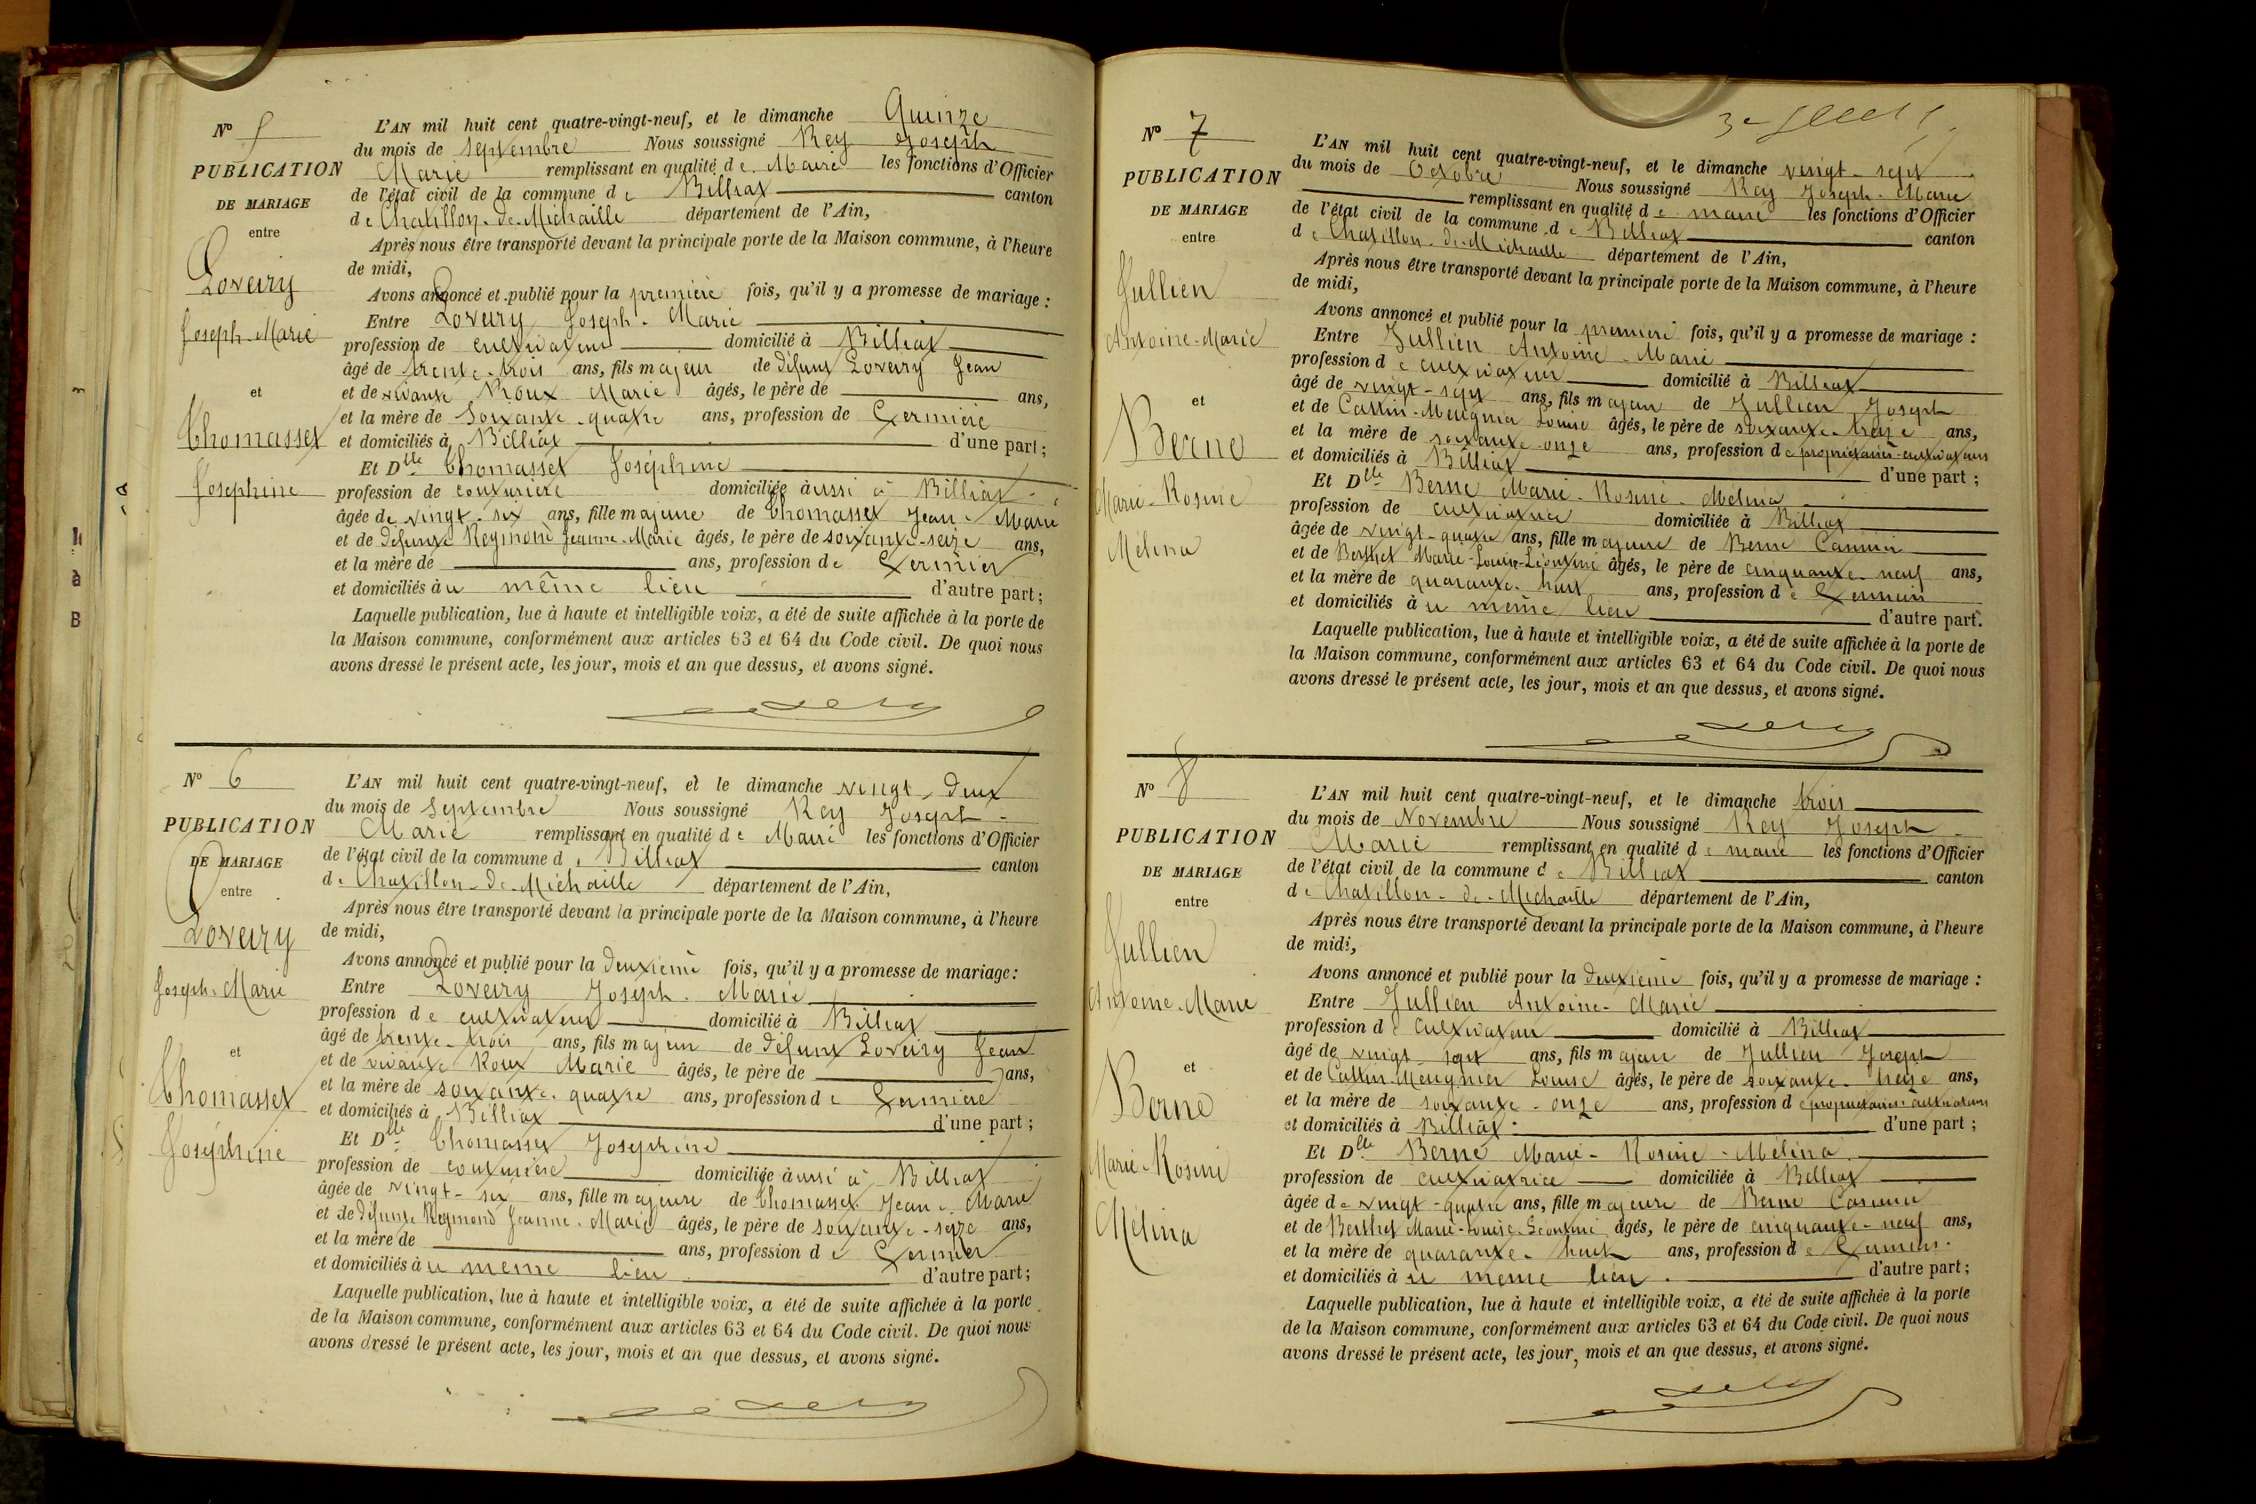 N° 5
PUBLICATION
DE MARIAGE
entre
Loveiry
Joseph-Marie
et
Thomasset
Joséphine
L'AN mil huit cent quatre-vingt-neuf, et le dimanche Quinze
du mois de septembre Nous soussigné Rey Joseph
Marie remplissant en qualité de Maire les fonctions d'Officier
de l'état civil de la commune de Billiat canton
de Chatillon-de-Michaille département de l'Ain,
Après nous être transporté devant la principale porte de la Maison commune, à l'heure
de midi,
Avons annoncé et publié pour la première fois, qu'il y a promesse de mariage :
Entre Loveiry Joseph-Marie
profession de cultivateur domicilié à Billiat
âgé de trente-trois ans, fils majeur de défunt Loveiry Jean
et de vivante Roux Marie âgés, le père de ans,
et la mère de soixante-quatre ans, profession de Fermière
et domiciliés à Billiat d'une part ;
Et Dlle Thomasset Joséphine
profession de couturière domiciliée aussi à Billiat
âgée de vingt-six ans, fille majeure de Thomasset Jean-Marie
et de défunte Reymond Jeanne-Marie âgés, le père de soixante-seize ans,
et la mère de ans, profession de Fermier
et domiciliés au même lieu d'autre part ;
Laquelle publication, lue à haute et intelligible voix, a été de suite affichée à la porte de
la Maison commune, conformément aux articles 63 et 64 du Code civil. De quoi nous
avons dressé le présent acte, les jour, mois et an que dessus, et avons signé.
Rey
N° 6
PUBLICATION
DE MARIAGE
entre
Loveiry
Joseph-Marie
et
Thomasset
Joséphine
L'AN mil huit cent quatre-vingt-neuf, et le dimanche vingt-deux
du mois de septembre Nous soussigné Rey Joseph-
Marie remplissant en qualité de Maire les fonctions d'Officier
de l'état civil de la commune de Billiat canton
de Chatillon-de-Michaille département de l'Ain,
Après nous être transporté devant la principale porte de la Maison commune, à l'heure
de midi,
Avons annoncé et publié pour la deuxième fois, qu'il y a promesse de mariage :
Entre Loveiry Joseph-Marie
profession de cultivateur domicilié à Billiat
âgé de trente-trois ans, fils majeur de défunt Loveiry Jean
et de vivante Roux Marie âgés, le père de ans,
et la mère de soixante-quatre ans, profession de Fermière
et domiciliés à Billiat d'une part ;
Et Dlle Thomasset Joséphine
profession de couturière domiciliée aussi à Billiat
âgée de vingt-six ans, fille majeure de Thomasset Jean-Marie
et de défunte Reymond Jeanne-Marie âgés, le père de soixante-seize ans,
et la mère de ans, profession de Fermier
et domiciliés au même lieu d'autre part ;
Laquelle publication, lue à haute et intelligible voix, a été de suite affichée à la porte
de la Maison commune, conformément aux articles 63 et 64 du Code civil. De quoi nous
avons dressé le présent acte, les jour, mois et an que dessus, et avons signé.
Rey
N° 7
PUBLICATION
DE MARIAGE
entre
Jullien
Antoine-Marie
et
Berne
Marie-Rosine
Mélina
L'AN mil huit cent quatre-vingt-neuf, et le dimanche vingt-sept
du mois de Octobre Nous soussigné Rey Joseph-Marie
remplissant en qualité de maire les fonctions d'Officier
de l'état civil de la commune de Billiat canton
de Chatillon-de-Michaille département de l'Ain,
Après nous être transporté devant la principale porte de la Maison commune, à l'heure
de midi,
Avons annoncé et publié pour la première fois, qu'il y a promesse de mariage :
Entre Jullien Antoine-Marie
profession de cultivateur domicilié à Billiat
âgé de vingt-sept ans, fils majeur de Jullien Joseph
et de Cattin-Meugnier Louise âgés, le père de soixante-treize ans,
et la mère de soixante-onze ans, profession de propriétaires-cultivateurs
et domiciliés à Billiat d'une part ;
Et Dlle Berne Marie-Rosine-Mélina
profession de cultivatrice domiciliée à Billiat
âgée de vingt-quatre ans, fille majeure de Berne Casimir
et de Berthet Marie-Louise-Léontine âgés, le père de cinquante-neuf ans,
et la mère de quarante-huit ans, profession de Fermiers
et domiciliés au même lieu d'autre part.
Laquelle publication, lue à haute et intelligible voix, a été de suite affichée à la porte de
la Maison commune, conformément aux articles 63 et 64 du Code civil. De quoi nous
avons dressé le présent acte, les jour, mois et an que dessus, et avons signé.
Rey
N° 8
PUBLICATION
DE MARIAGE
entre
Jullien
Antoine-Marie
et
Berne
Marie-Rosine
Mélina
L'AN mil huit cent quatre-vingt-neuf, et le dimanche trois
du mois de Novembre Nous soussigné Rey Joseph-
Marie remplissant en qualité de maire les fonctions d'Officier
de l'état civil de la commune de Billiat canton
de Chatillon-de-Michaille département de l'Ain,
Après nous être transporté devant la principale porte de la Maison commune, à l'heure
de midi,
Avons annoncé et publié pour la deuxième fois, qu'il y a promesse de mariage :
Entre Jullien Antoine-Marie
profession de cultivateur domicilié à Billiat
âgé de vingt-sept ans, fils majeur de Jullien Joseph
et de Cattin-Meugnier Louise âgés, le père de soixante-treize ans,
et la mère de soixante-onze ans, profession de propriétaires-cultivateurs
et domiciliés à Billiat d'une part ;
Et Dlle Berne Marie-Rosine-Mélina
profession de cultivatrice domiciliée à Billiat
âgée de vingt-quatre ans, fille majeure de Berne Casimir
et de Berthet Marie-Louise-Léontine âgés, le père de cinquante-neuf ans,
et la mère de quarante-huit ans, profession de Fermiers
et domiciliés au même lieu d'autre part ;
Laquelle publication, lue à haute et intelligible voix, a été de suite affichée à la porte
de la Maison commune, conformément aux articles 63 et 64 du Code civil. De quoi nous
avons dressé le présent acte, les jour, mois et an que dessus, et avons signé.
Rey